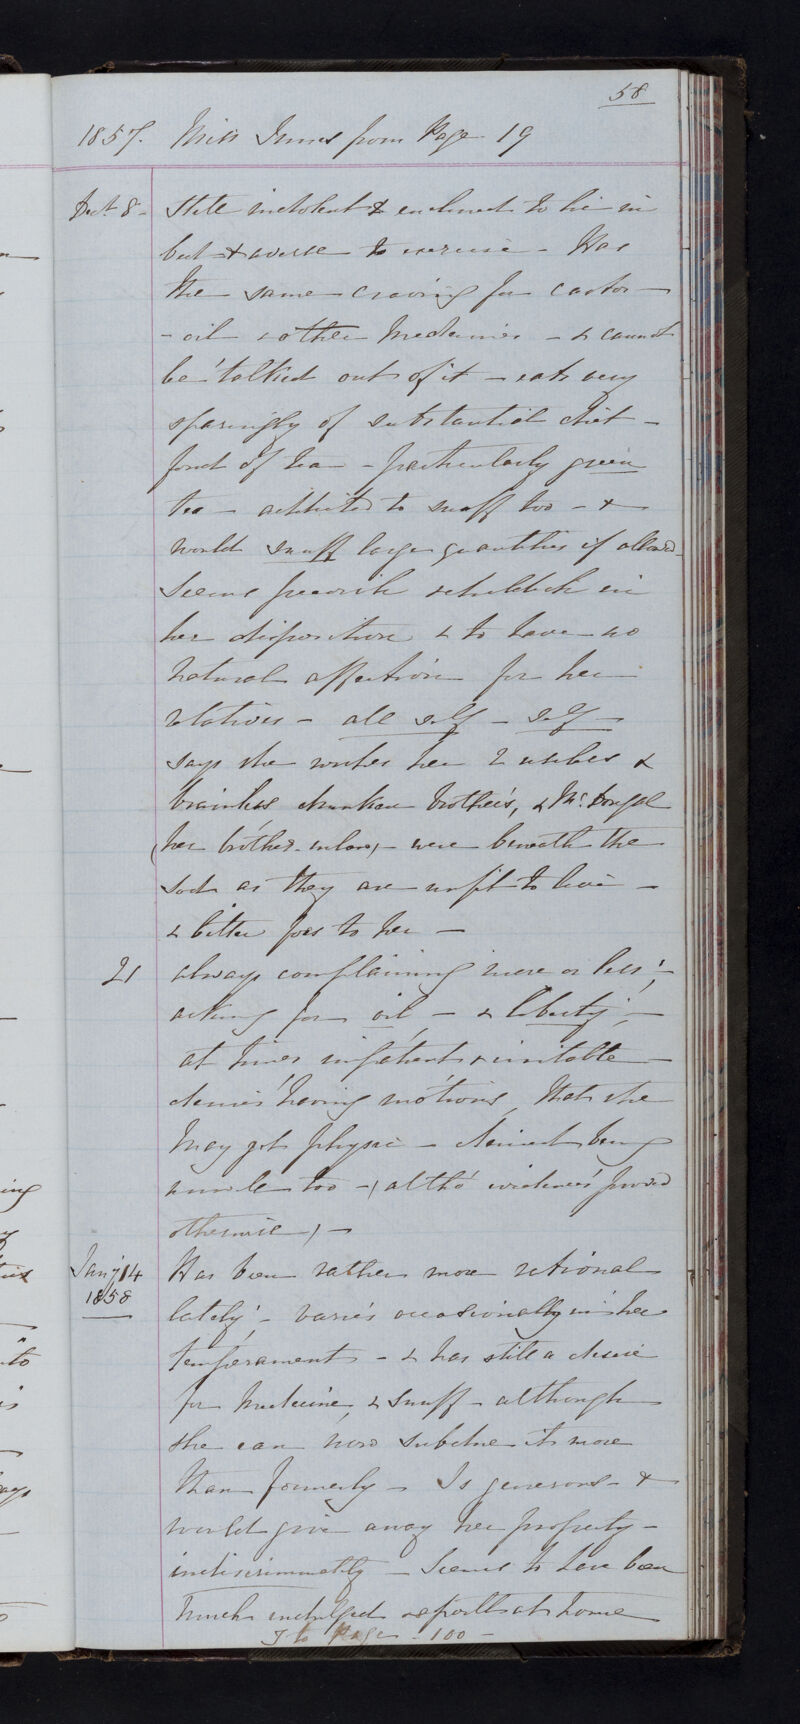 58
1857. Miss Innes from Page 19
Decr. 8 - Still indolent & inclined to lie in
bed & averse to exercise - Has
the same craving for castor
- oil & other Medicines - & cannot
be talked out of it - eats very
sparingly of substantial diet -
fond of tea - particularly green
tea - addicted to snuff too - &
would snuff large quantities if allowed -
Seems peevish & childish in
her disposition & to have no
natural affection for her
relatives - all self - self -
says she wishes her 2 useless &
brainless drunken brothers, & Mc. Dougal
(her brother-inlaw) - were beneath the
sod as they are unfit to live -
& bitter foes to her -
21 always complaining more or less, -
asking for oil, - & liberty, -
at times impatient & irritable -
denies having motions, that she
may get physic - denied being
unwle too - (altho' evidences proved
otherwise) -
Jany 14 Has been rather more rational
1858 lately - varies occasionally in her
temperament - & has still a desire
for Medicine, & Snuff - although
she can now subdue it more
than formerly - Is generous - &
would give away her property -
indiscriminately - Seems to have been
much indulged & spoilt at home
To Page - 100 -